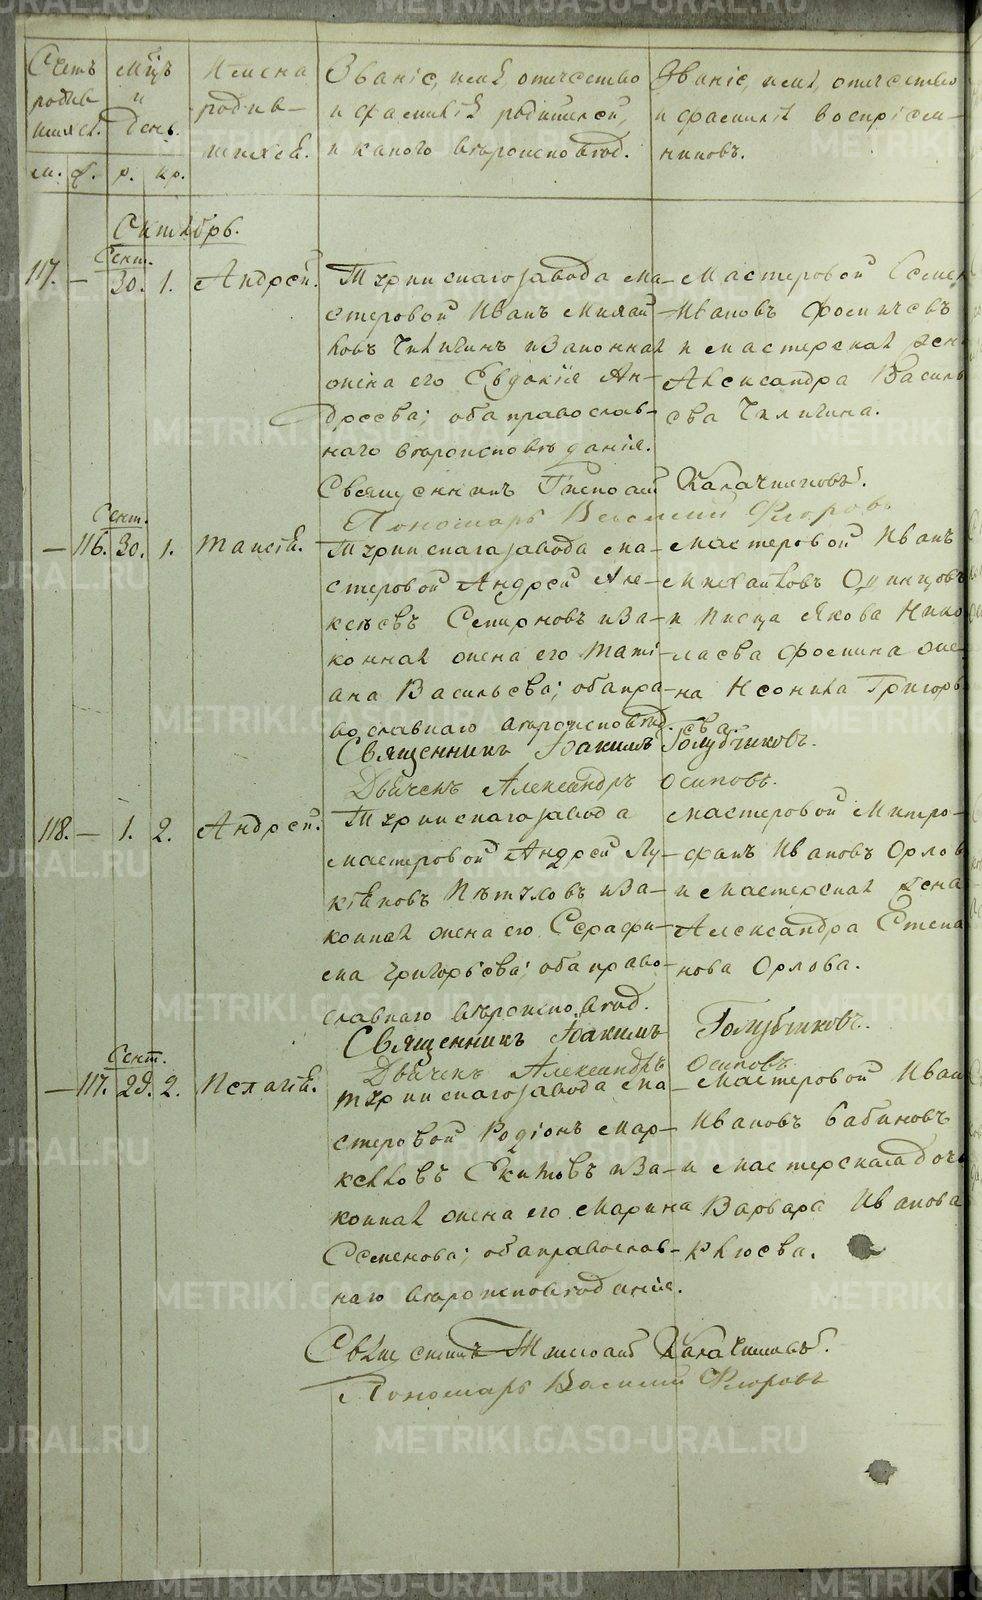 Счетъ родив- шихся. м. ж.
Мѣцъ и День. р. кр.
Имена
родив-
шихся.
Званіе, имя, отечество
и фамилія родителей,
и какого вѣроисповѣд.
Званіе, имя, отечество
и фамилія воспріем-
никовъ.
Октябрь.
Сент.
117. — 30. 1. Андрей.
завода ма-
стеровой Иванъ
Чилигинъ и законная
жена его Евдокія Ан-
дреева; оба православ-
наго вѣроисповѣданія.
Мастеровой
Ивановъ Фомичевъ
и мастерская жен
Александра Василь
ева Чилигина.
Священникъ Калачниковъ.
Пономарь Василий Флоровъ
Сент.
— 116. 30. 1. Таисія.
завода ма-
стеровой Андрей Але-
ксѣевъ Смирновъ и за-
конная жена его Тати-
ана Васильева; оба пра-
вославнаго вѣроисповѣд.
мастеровой Иванъ
Михайловъ Одинцовъ
и писца Якова Нико
лаева Фомина же
на Ксонида Григорь
ева.
Священникъ Іоакимъ Голубчиковъ.
Дьячекъ Александръ Осиповъ.
118. — 1. 2. Андрей.
завода
мастеровой Андрей Лу-
кіяновъ Пѣтуховъ и за-
конная жена его Серафи-
ма Григорьева; оба право-
славнаго вѣроисповѣд.
мастеровой Митро-
фанъ Ивановъ Орлов
и мастерская жена
Александра Степа
нова Орлова.
Священникъ Іоакимъ Голубчиковъ.
Дьячекъ Александръ Осиповъ.
Сент.
— 117. 29. 2. Пелагія.
завода ма-
стеровой Родіонъ Мар-
келловъ Скитовъ и за-
конная жена его Марина
Семенова; оба православ-
наго вѣроисповѣданія.
мастеровой Иван
Ивановъ Бабиновъ
и мастерская дочь
Варвара Иванова
Клюева.
Калачниковъ.
Пономарь Василий Флоровъ
METRIKI.GASO-URAL.RU